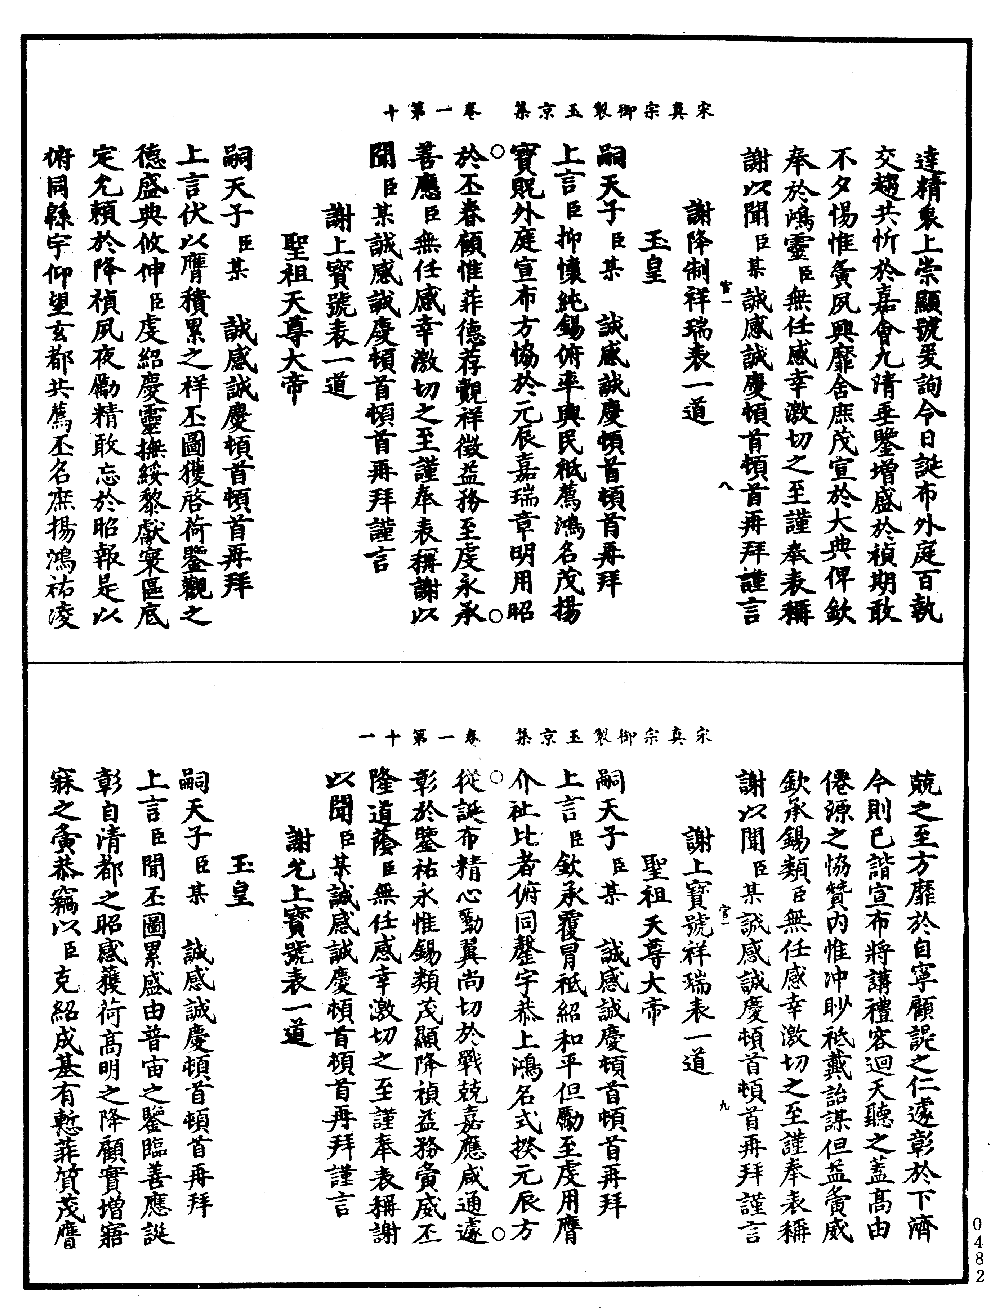 宋真宗御製玉京集　卷一第十
達精衷上崇顯號爰詢今日誕布外庭百執
交趨共忻於嘉會九清垂鑒增盛於禎期敢
不夕惕惟夤夙興靡舍庶茂宣於大典俾欽
奉於鴻靈臣無任感幸激切之至謹奉表稱
謝以聞臣某誠感誠慶頓首頓首再拜謹言
宮一　八
謝降制祥瑞表一道
玉皇
嗣天子臣某　誠感誠慶頓首頓首再拜
上言臣抑懷純錫俯率興民祗薦鴻名茂揚
寶貺外庭宣布方協於元辰嘉瑞章明用昭
於丕眷顧惟菲德荐觀祥徵益務至虔永承
善應臣無任感幸激切之至謹奉表稱謝以
聞臣某誠感誠慶頓首頓首再拜謹言
謝上寶號表一道
聖祖天尊大帝
嗣天子臣某　誠感誠慶頓首頓首再拜
上言伏以膺積累之祥丕圖獲啓荷鑒觀之
德盛典攸伸臣虔紹慶靈撫綏黎獻寰區底
定允賴於降禎夙夜勵精敢忘於昭報是以
俯同縣宇仰望玄都共薦丕名庶揚鴻祐凌
宋真宗御製玉京集　卷一第十一
兢之至方靡於自寧顧諟之仁遽彰於下濟
今則已諧宣布將講禮容迴天聽之蓋高由
僊源之協贊內惟沖眇祗戴詒謀但益夤威
欽承錫類臣無任感幸激切之至謹奉表稱
謝以聞臣某誠感誠慶頓首頓首再拜謹言
宮一　九
謝上寶號祥瑞表一道
聖祖天尊大帝
嗣天子臣某　誠感誠慶頓首頓首再拜
上言臣欽承覆冐祗紹和平但勵至虔用膺
介祉比者俯同罄宇恭上鴻名式揆元辰方
從誕布精心勤翼尚切於戰兢嘉應咸通遽
彰於鑒祐永惟錫類茂顯降禎益務夤威丕
隆道蔭臣無任感幸激切之至謹奉表稱謝
以聞臣某誠感誠慶頓首頓首再拜謹言
謝允上寶號表一道
玉皇
嗣天子臣某　誠感誠慶頓首頓首再拜
上言臣聞丕圖累盛由普宙之鑒臨善應誕
彰自清都之昭感獲荷高明之降顧實增寤
寐之夤恭竊以臣克紹成基有慙菲質茂膺
0482